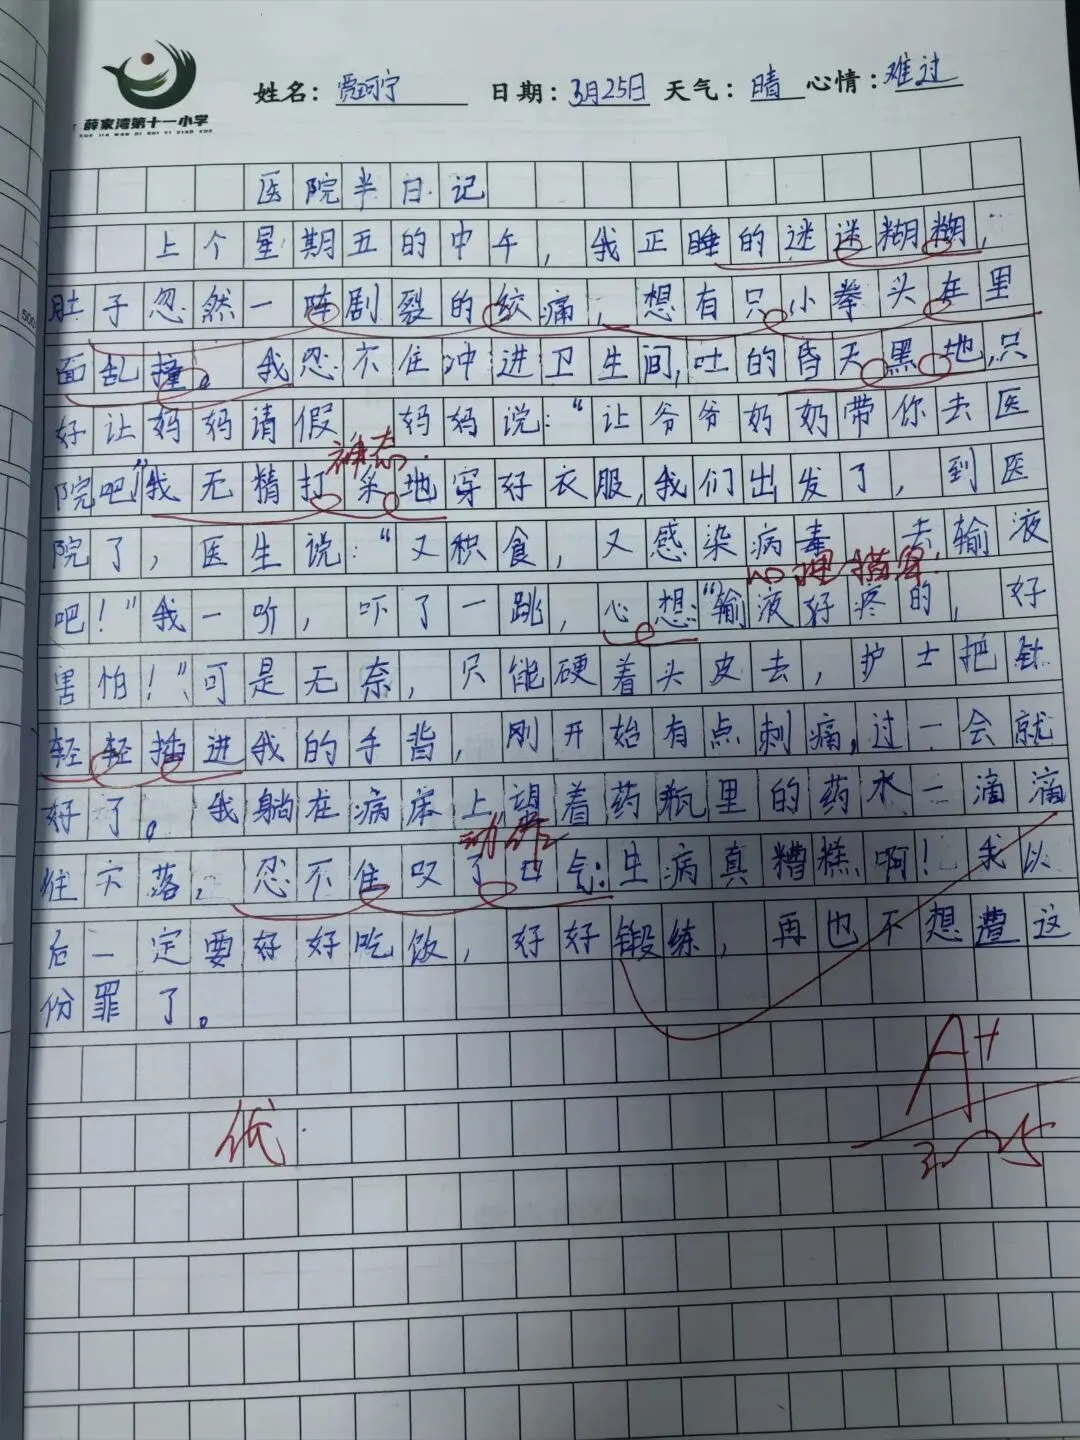 薛家湾第十一小学
XUE JIA WAN DI SHI YI XIAO XUE
姓名：贾珂宁 日期：3月25日 天气：晴 心情：难过
500
医院半日记
上个星期五的中午，我正睡的迷迷糊糊，
肚子忽然一阵剧裂的绞痛，想有只小拳头在里
面乱撞。我忍不住冲进卫生间，吐的昏天黑地，只
好让妈妈请假，妈妈说：“让爷爷奶奶带你去医
院吧”我无精打采地穿好衣服，我们出发了，到医
神态
院了，医生说：“又积食，又感染病毒，去输液
吧！”我一听，吓了一跳，心想：“输液好疼的，好
心理描写
害怕！”可是无奈，只能硬着头皮去，护士把针
轻轻插进我的手背，刚开始有点刺痛，过一会就
好了。我躺在病床上望着药瓶里的药水一滴滴
往下落，忍不住叹了口气：生病真糟糕啊！我以
动作
后一定要好好吃饭，好好锻练，再也不想遭这
份罪了。
A+
优